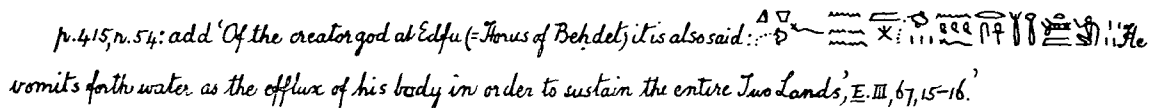 p.415, n.54: add 'Of the creator god at Edfu (=Horus of Beḥdet) it is also said: "He
vomits forth water as the efflux of his body in order to sustain the entire Two Lands", E. III, 67, 15-16.'